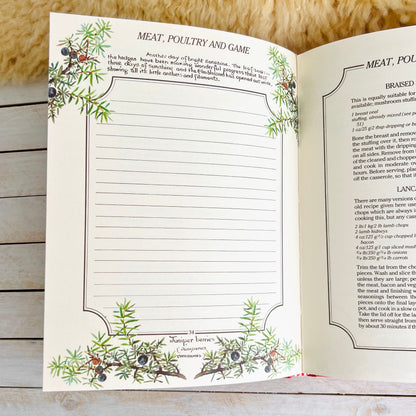 MEAT, POULTRY AND GAME
Another day of bright sunshine. The leaf-buds in
the hedges have been making wonderful progress these last
three days of sunshine and the
showing all its little anthers and filaments.
34
Juniper berries
MEAT, POU
BRAISED
This is equally suitable for
available; mushroom stuff
1 breast veal
stuffing, already mixed (see
51)
1 oz/25 g/2 tbsp dripping or b
Bone the breast and remove
the stuffing over it, then ro
the meat with the dripping
on all sides. Remove from
of the cleaned and chopped
and cook in moderate ove
hours. Before serving, place
off the casserole, so that it
LANC
There are many versions o
old recipe given here use
chops which are always in
cooking this, but any cas
2 lb/1 kg/2 lb lamb chops
2 lamb kidneys
4 oz/125 g/½ cup chopped h
bacon
4 oz/125 g/1 cup sliced mush
¾ lb/350 g/¾ lb onions
¾ lb/350 g/¾ lb carrots
Trim the fat from the cho
pieces. Wash and slice the
unless they are large; pe
the meat, bacon and vege
the meat and finishing w
seasonings between the
potatoes onto the final laye
pot, and cook in a slow o
Take the lid off for the last
then serve straight from t
by about 30 minutes if th